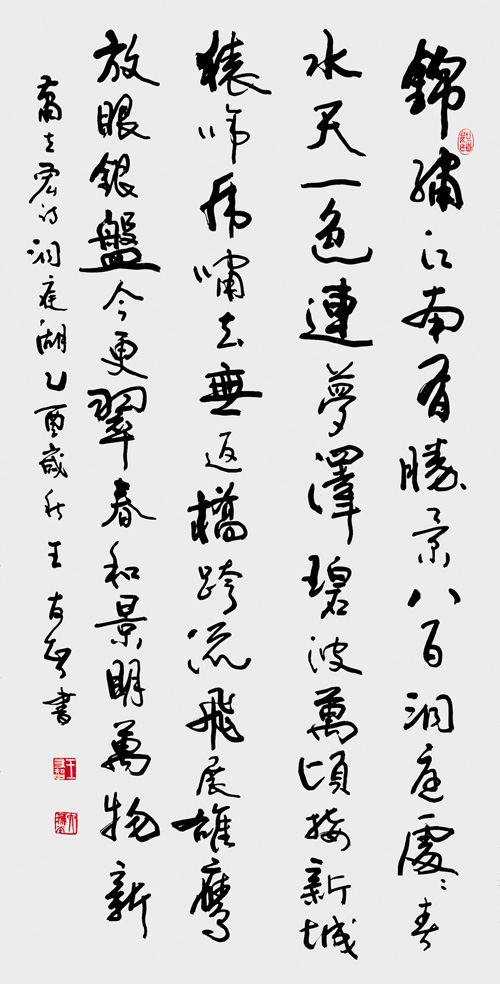 錦繡江南有勝景八百洞庭處々春
水天一色連夢澤碧波萬頃接新城
猿啼虎嘯去無返橋跨流飛展雄鷹
放眼銀盤今更翠春和景明萬物新
蕭立君詩洞庭湖乙酉歲秋王友智書